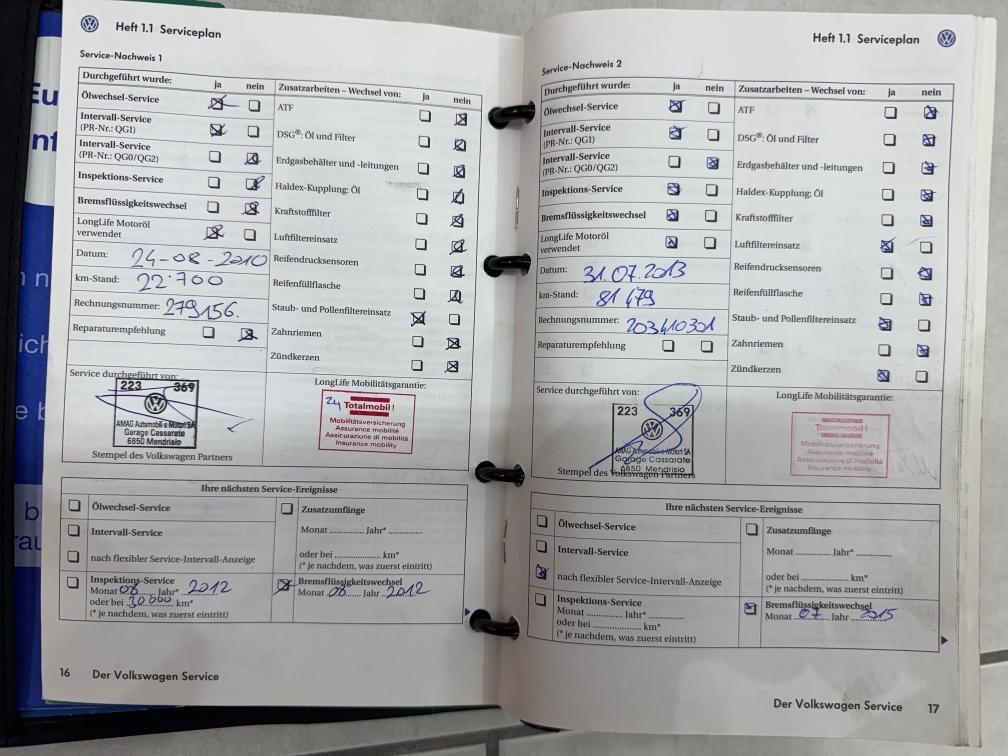 Heft 1.1 Serviceplan
Service-Nachweis 1
Durchgeführt wurde: ja nein
Ölwechsel-Service
Intervall-Service
(PR-Nr.: QG1)
Intervall-Service
(PR-Nr.: QG0/QG2)
Inspektions-Service
Bremsflüssigkeitswechsel
LongLife Motoröl
verwendet
Datum: 24-08-2010
km-Stand: 22'700
Rechnungsnummer: 279156.
Reparaturempfehlung
Zusatzarbeiten – Wechsel von: ja nein
ATF
DSG®: Öl und Filter
Erdgasbehälter und -leitungen
Haldex-Kupplung: Öl
Kraftstofffilter
Luftfiltereinsatz
Reifendrucksensoren
Reifenfüllflasche
Staub- und Pollenfiltereinsatz
Zahnriemen
Zündkerzen
Service durchgeführt von:
223 369
AMAG Automobili e Motori SA
Garage Cassarate
6850 Mendrisio
Stempel des Volkswagen Partners
LongLife Mobilitätsgarantie:
24 Totalmobil!
Mobilitätsversicherung
Assurance mobilité
Assicurazione di mobilità
Insurance mobility
Ihre nächsten Service-Ereignisse
Ölwechsel-Service
Intervall-Service
nach flexibler Service-Intervall-Anzeige
Inspektions-Service
Monat 08 Jahr* 2012
oder bei 30000 km*
(* je nachdem, was zuerst eintritt)
Zusatzumfänge
Monat ............ Jahr* ............
oder bei ................ km*
(* je nachdem, was zuerst eintritt)
Bremsflüssigkeitswechsel
Monat 08 Jahr 2012
16 Der Volkswagen Service
Heft 1.1 Serviceplan
Service-Nachweis 2
Durchgeführt wurde: ja nein
Ölwechsel-Service
Intervall-Service
(PR-Nr.: QG1)
Intervall-Service
(PR-Nr.: QG0/QG2)
Inspektions-Service
Bremsflüssigkeitswechsel
LongLife Motoröl
verwendet
Datum: 31.07.2013
km-Stand: 81479
Rechnungsnummer: 203410301
Reparaturempfehlung
Zusatzarbeiten – Wechsel von: ja nein
ATF
DSG®: Öl und Filter
Erdgasbehälter und -leitungen
Haldex-Kupplung: Öl
Kraftstofffilter
Luftfiltereinsatz
Reifendrucksensoren
Reifenfüllflasche
Staub- und Pollenfiltereinsatz
Zahnriemen
Zündkerzen
Service durchgeführt von:
223 369
AMAG Automobili e Motori SA
Garage Cassarate
6850 Mendrisio
Stempel des Volkswagen Partners
LongLife Mobilitätsgarantie:
Totalmobil!
Mobilitätsversicherung
Assurance mobilité
Assicurazione di mobilità
Insurance mobility
Ihre nächsten Service-Ereignisse
Ölwechsel-Service
Intervall-Service
nach flexibler Service-Intervall-Anzeige
Inspektions-Service
Monat ............ Jahr* ............
oder bei ................ km*
(* je nachdem, was zuerst eintritt)
Zusatzumfänge
Monat ............ Jahr* ............
oder bei ................ km*
(* je nachdem, was zuerst eintritt)
Bremsflüssigkeitswechsel
Monat 07 Jahr 2015
Der Volkswagen Service 17